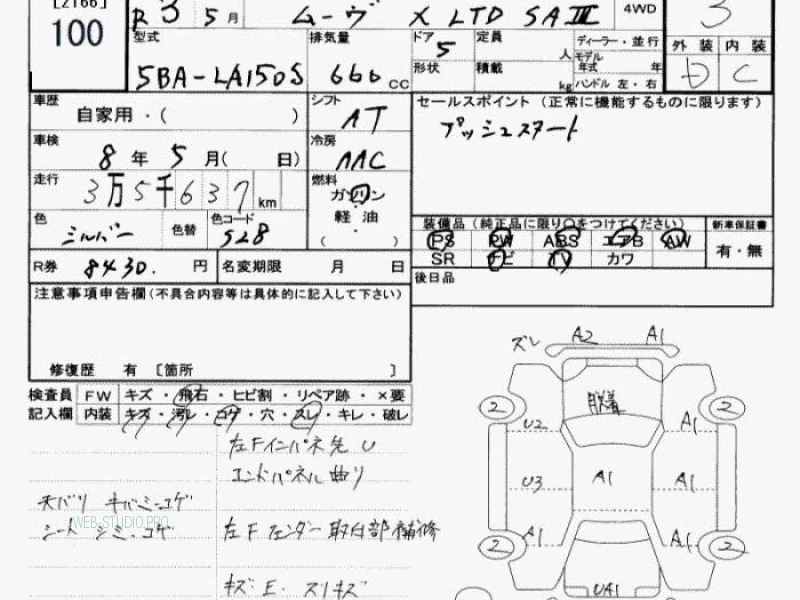 [2166]
100
R 3 5月 ムーヴ X LTD SAⅢ 4WD 3
型式 5BA-LA150S
排気量 660 cc
ドア 5 定員 人
形状 積載 kg
ディーラー・並行
モデル年式 年
ハンドル 左・右
外装 内装
D C
車歴 自家用・( )
シフト AT
車検 8年 5月( 日)
冷房 AAC
走行 3万5千637km
燃料 ガソリン
軽油
( )
色 シルバー 色替 色コード S28
R券 8430. 円 名変期限 月 日
セールスポイント (正常に機能するものに限ります)
プッシュスタート
装備品(純正品に限り○をつけてください) 新車保証書
PS PW ABS エアB AW 有・無
SR ナビ TV カワ
後日品
注意事項申告欄(不具合内容等は具体的に記入して下さい)
修復歴 有 〔箇所 〕
検査員 FW キズ・飛石・ヒビ割・リペア跡・×要
記入欄 内装 キズ・汚レ・コゲ・穴・スレ・キレ・破レ
左Fインパネ先U
エンドパネル曲り
天バリ キバミ・コゲ
シート シミ・コゲ
WEB-STUDIO.PRO
左Fフェンダー取付部補修
キズ:E. スリキズ
ズレ A2 A1
脱着
2 2
U2 A1
U3 A1 A1
A1 A1
2 2
U41